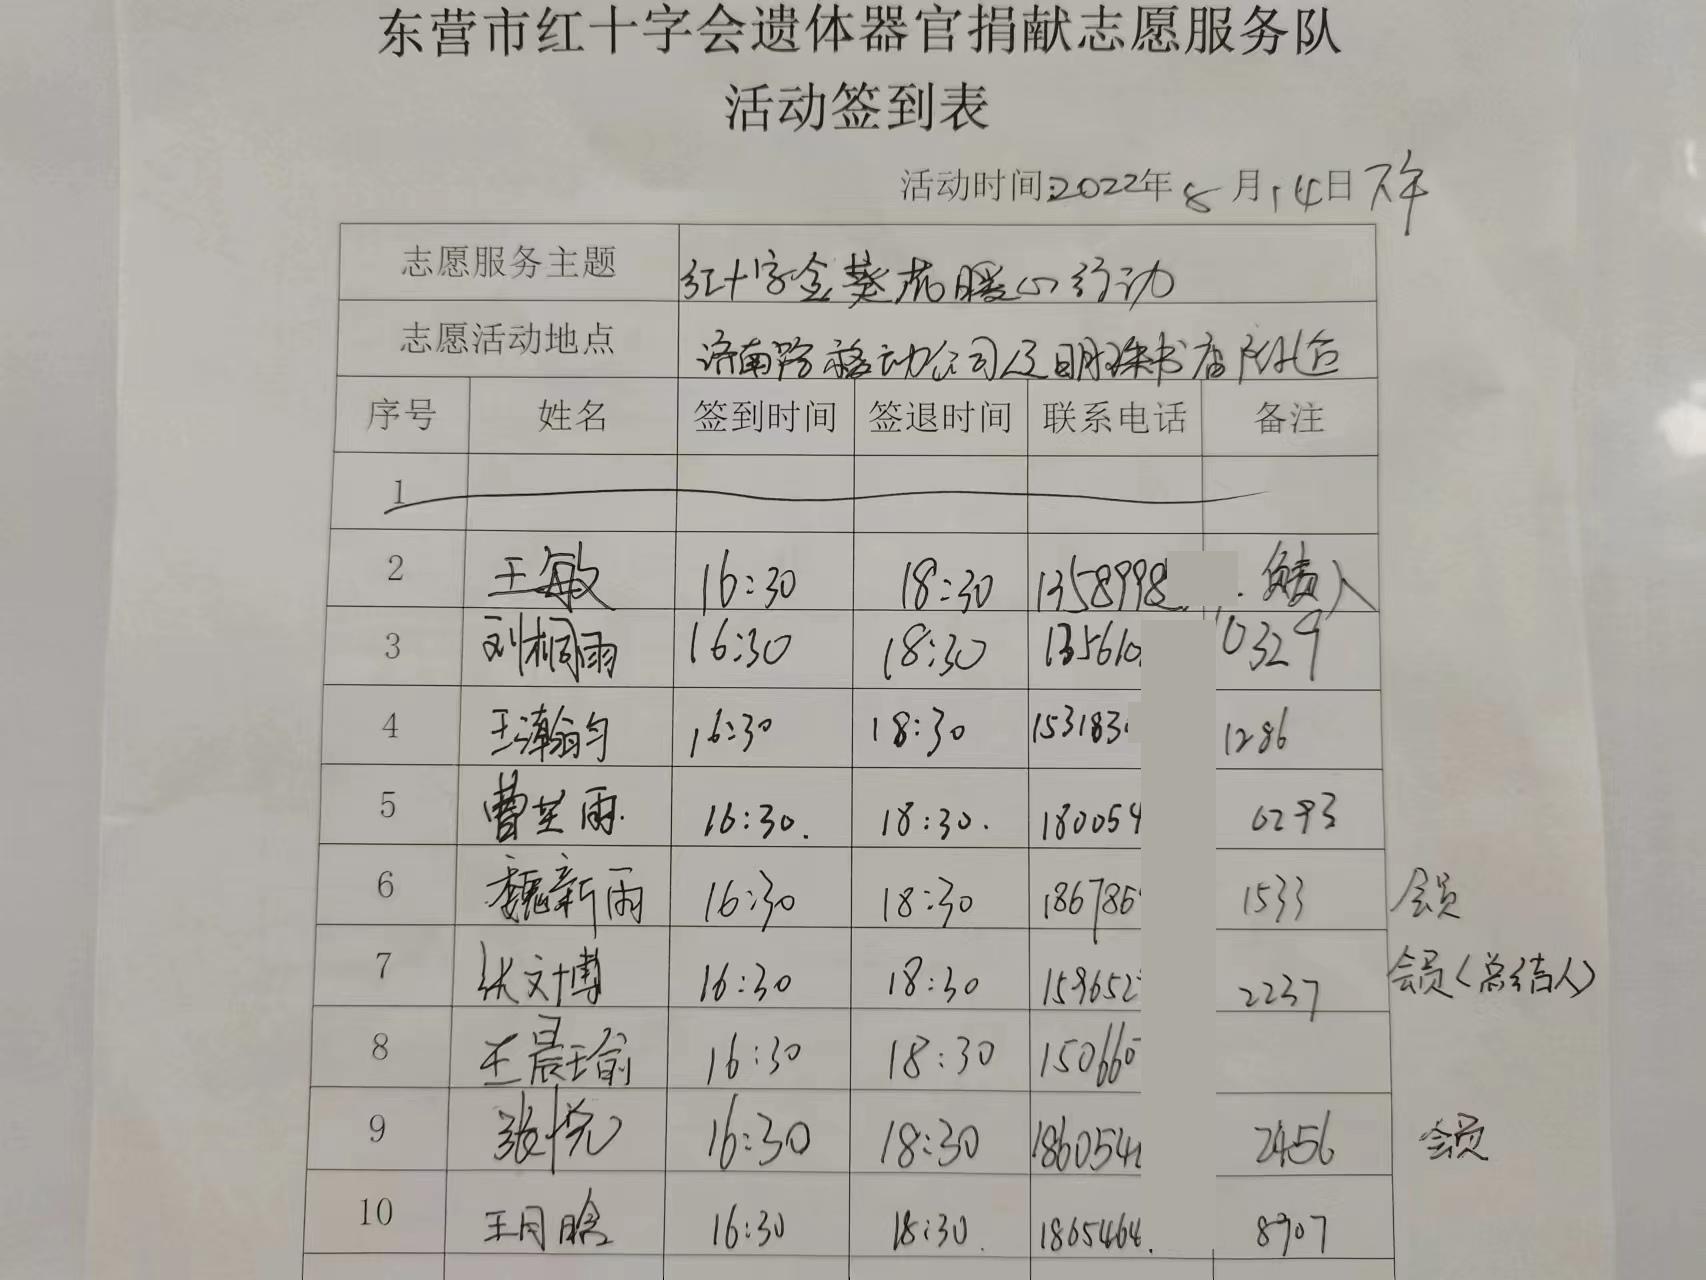 东营市红十字会遗体器官捐献志愿服务队
活动签到表
活动时间:2022年8月14日下午
志愿服务主题 红十字金葵花暖心行动
志愿活动地点 济南路移动公司及明珠书店附近
序号 姓名 签到时间 签退时间 联系电话 备注
1
2 王敏 16:30 18:30 1358998 负责人
3 刘桐雨 16:30 18:30 135610 0329
4 王瀚匀 16:30 18:30 153183 1286
5 曹芷雨 16:30. 18:30. 180054 0293
6 魏新雨 16:30 18:30 186786 1533 会员
7 张文博 16:30 18:30 159652 2237 会员(总结人)
8 王晨瑜 16:30 18:30 150660
9 张悦 16:30 18:30 186054 2456 会员
10 王月晗 16:30 18:30. 1865464 8907